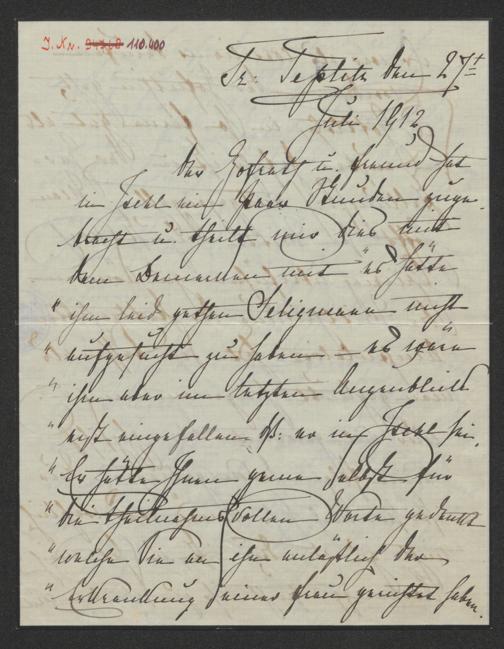 J. Nr. 110.400
Tr: Teplitz den 27t
Juli 1912
Der Hofrath u. Freund hat
in Ischl ein Paar Stunden zuge-
bracht u. theilt mir dies mit
dem Bemerken mit "es hätte
" ihm leid gethan Seligmann nicht
" aufgesucht zu haben – es wäre
" ihm aber im letzten Augenblick
" erst eingefallen ß: er in Ischl sei.
" Er hätte Ihnen gerne selbst für
" die theilnahmsvollen Worte gedankt
" welche Sie an ihn anläßlich der
" Erkrankung seiner Frau gerichtet haben.